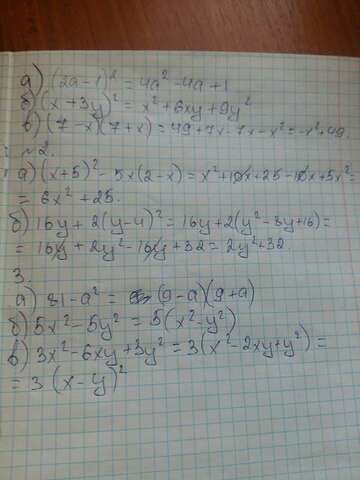 а) (2a-1)² = 4a² - 4a + 1
б) (x+3y)² = x² + 6xy + 9y²
в) (7-x)(7+x) = 49 + 7x - 7x - x² = -x² + 49
№2.
а) (x+5)² - 5x(2-x) = x² + 10x + 25 - 10x + 5x² =
= 6x² + 25.
б) 16y + 2(y-4)² = 16y + 2(y² - 8y + 16) =
= 16y + 2y² - 16y + 32 = 2y² + 32
3.
а) 81 - a² = (9-a)(9+a)
б) 5x² - 5y² = 5(x² - y²)
в) 3x² - 6xy + 3y² = 3(x² - 2xy + y²) =
= 3(x-y)²